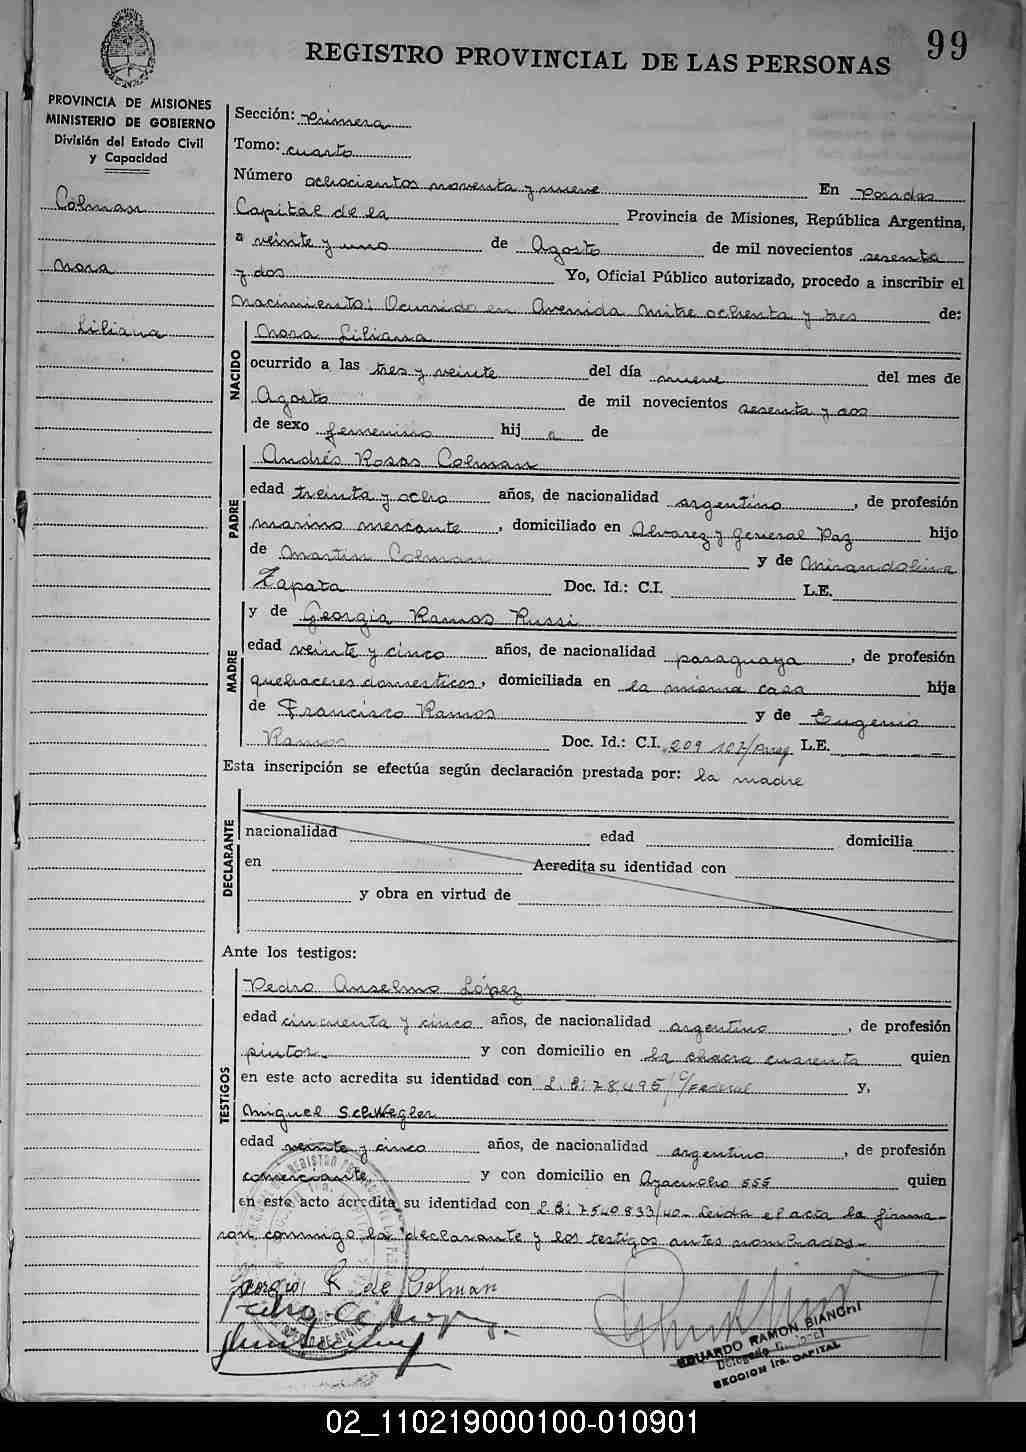 REGISTRO PROVINCIAL DE LAS PERSONAS
99
PROVINCIA DE MISIONES
MINISTERIO DE GOBIERNO
División del Estado Civil
y Capacidad
Colman
Nora
Liliana
Sección: Primera
Tomo: cuarto
Número ochocientos noventa y nueve En Posadas
Capital de la Provincia de Misiones, República Argentina,
a veinte y uno de Agosto de mil novecientos sesenta
y dos Yo, Oficial Público autorizado, procedo a inscribir el
nacimiento: Ocurrido en Avenida Mitre ochenta y tres de:
NACIDO
Nora Liliana
ocurrido a las tres y veinte del día nueve del mes de
Agosto de mil novecientos sesenta y dos
de sexo femenino hij a de
PADRE
Andrés Rosas Colman
edad treinta y ocho años, de nacionalidad argentino, de profesión
marino mercante, domiciliado en Alvarez y General Paz hijo
de Martin Colman y de Mirandolina
Zapata Doc. Id.: C.I. L.E.
y de Georgia Ramos Russi
MADRE
edad veinte y cinco años, de nacionalidad paraguaya, de profesión
quehaceres domesticos, domiciliada en la misma casa hija
de Francisco Ramos y de Eugenia
Ramos Doc. Id.: C.I. 209 107/Parag L.E.
Esta inscripción se efectúa según declaración prestada por: la madre
DECLARANTE
nacionalidad edad domicilia
en Acredita su identidad con
y obra en virtud de
Ante los testigos:
TESTIGOS
Pedro Anselmo López
edad cincuenta y cinco años, de nacionalidad argentino, de profesión
pintor y con domicilio en la chacra cuarenta quien
en este acto acredita su identidad con C/Federal y,
Miguel Schwegler
edad veinte y cinco años, de nacionalidad argentino, de profesión
comerciante y con domicilio en Ayacucho 555 quien
en este acto acredita su identidad con 7540833/40- Leida el acta la firma-
ron conmigo la declarante y los testigos antes nombrados-
R de Colmán
EDUARDO RAMON BIANCHI
SECCION 1ra. CAPITAL
02_110219000100-010901